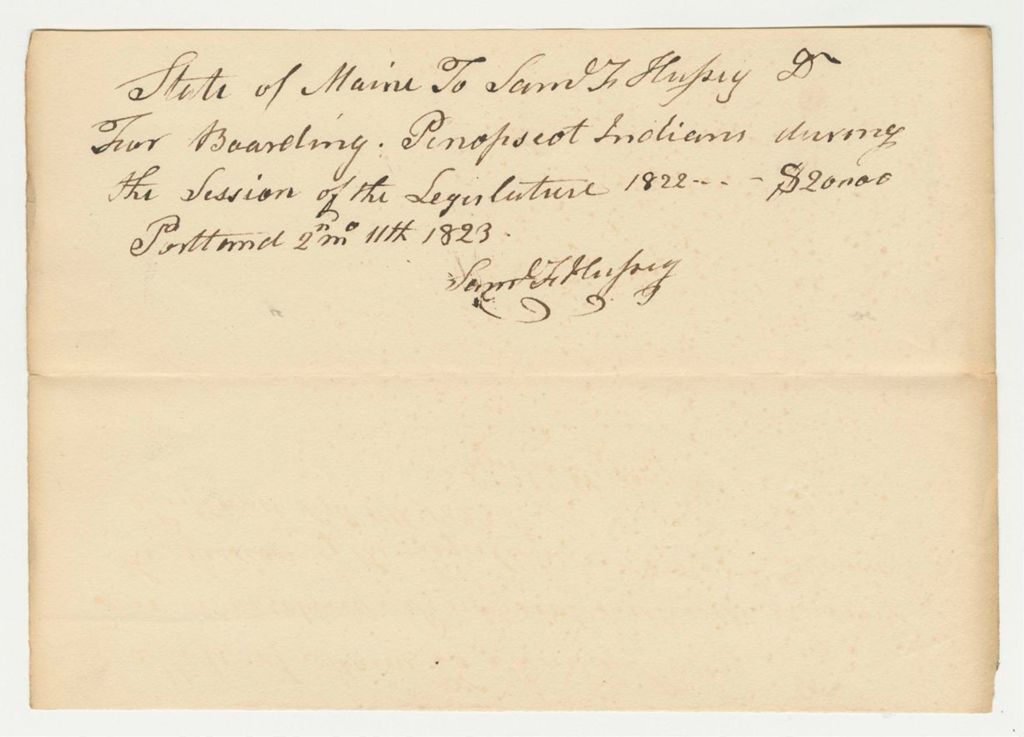 State of Maine To Saml F Hussey Dr
For Boarding. Penopscot Indians during
the Session of the Legislature 1822 - - - $20000
Portland 2nd mo 11th 1823.
Saml F Hussey